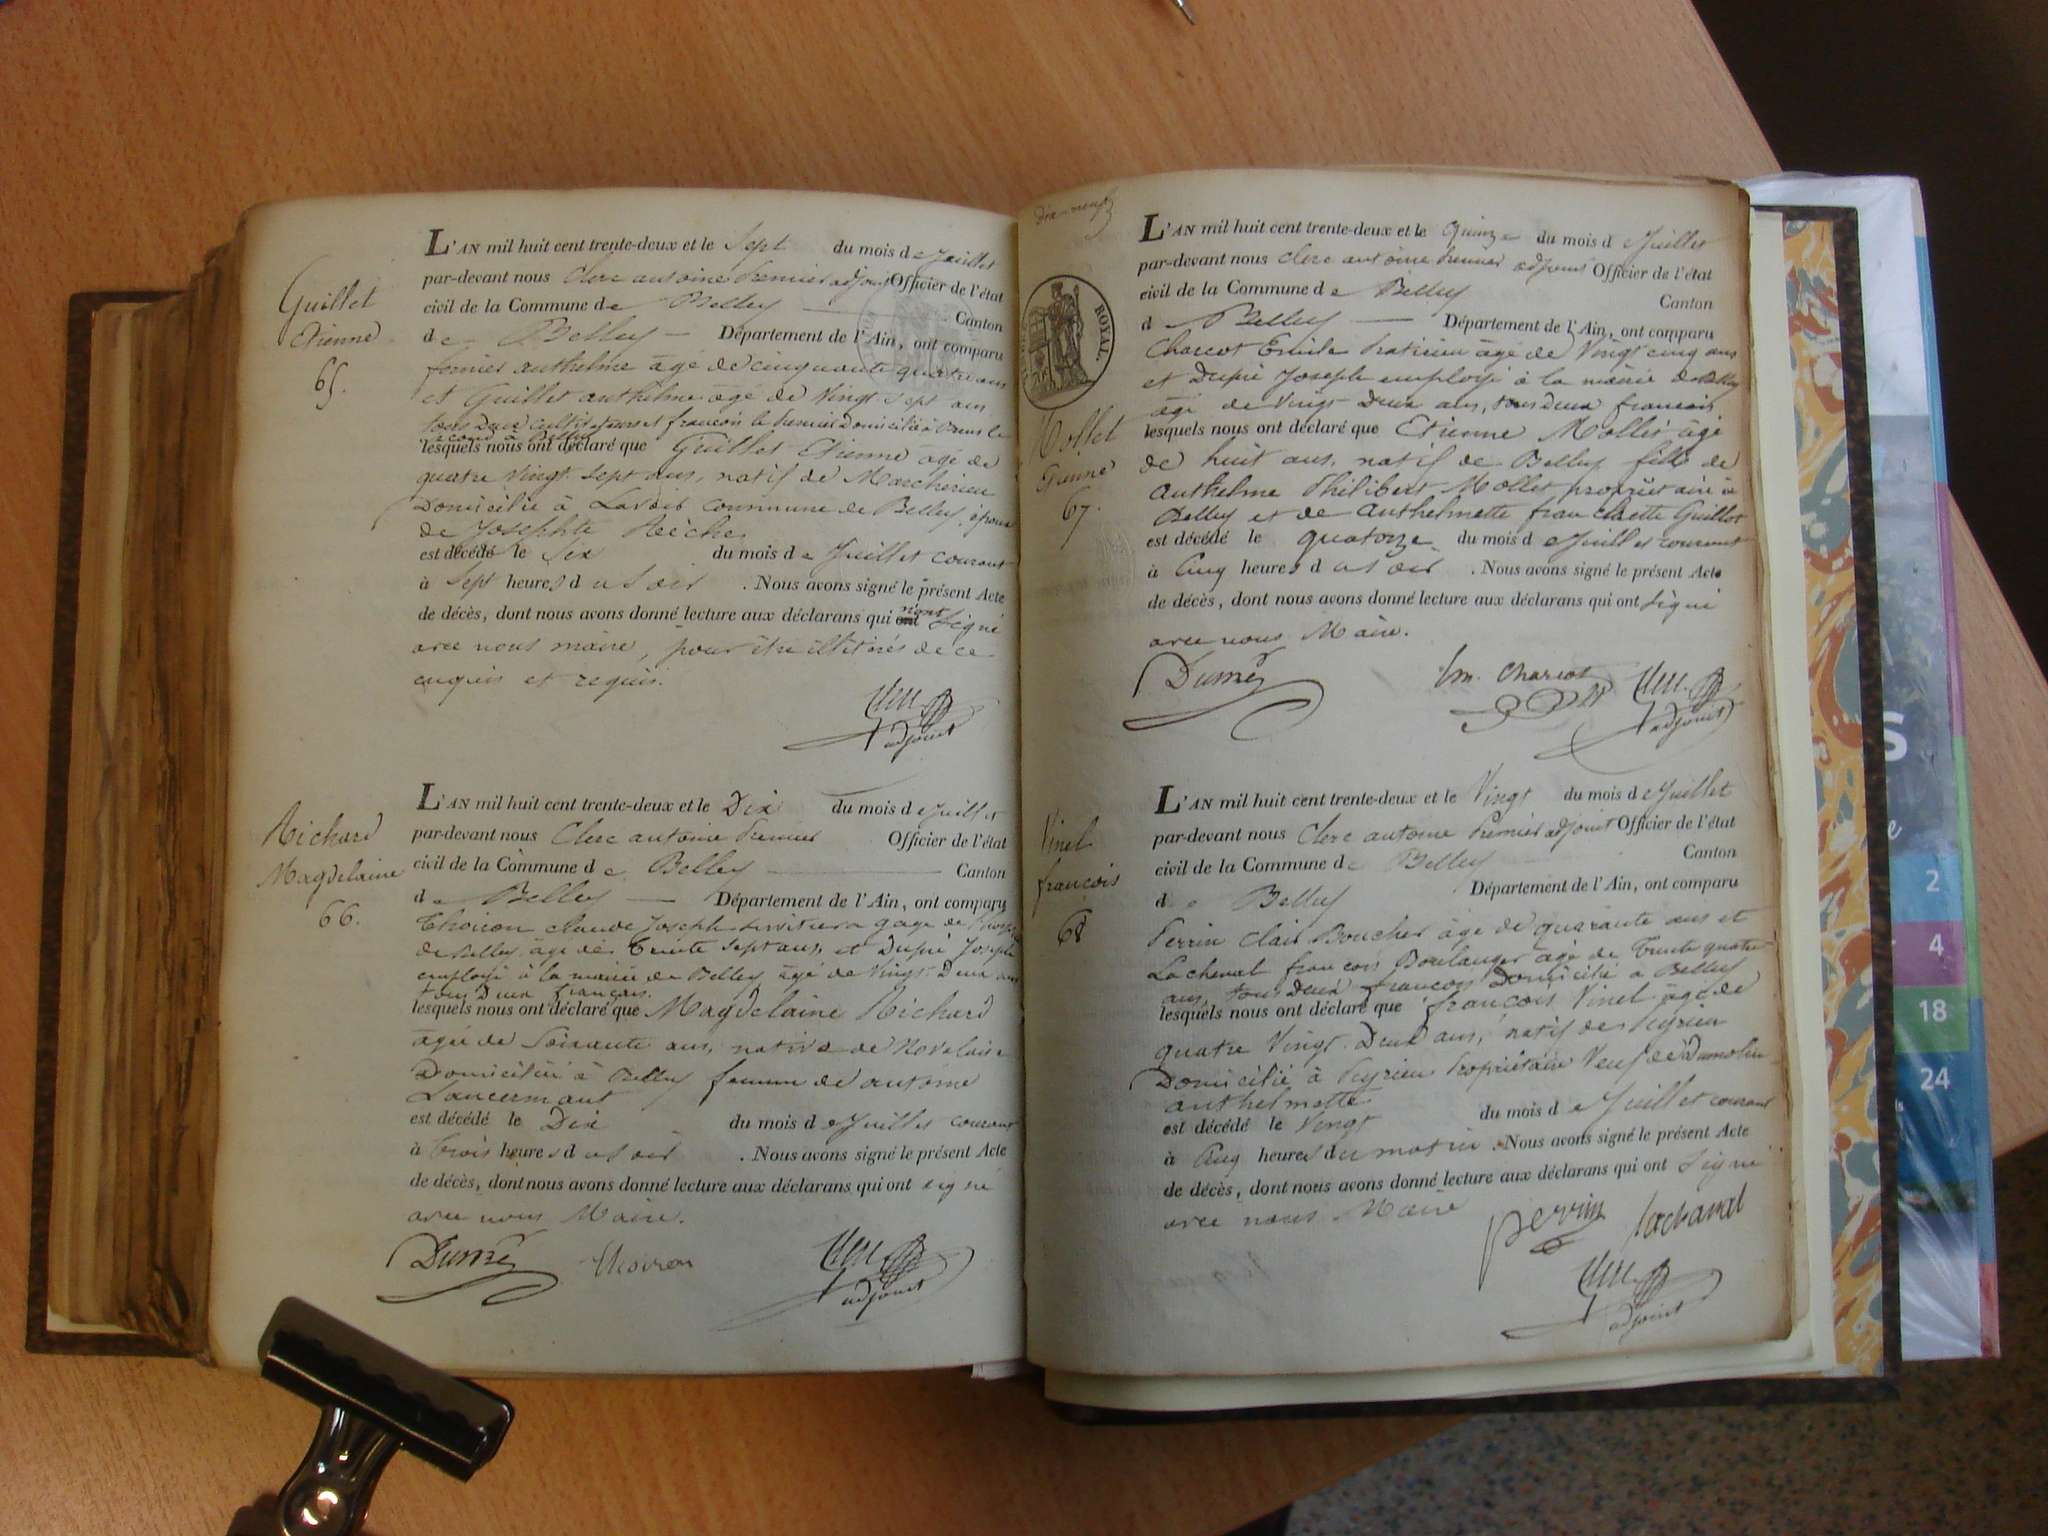 Guillet
Etienne
65.
L'AN mil huit cent trente-deux et le Sept du mois de Juillet
par-devant nous Clerc antoine Premier adjoint Officier de l'état
civil de la Commune de Belley Canton
de Belley Département de l'Ain, ont comparu
anthelme âgé de cinquante quatre ans
et Guillet anthelme âgé de Vingt Sept ans
tous Deux cultivateurs et françois le Premier Domicilié à le
second à Belley
lesquels nous ont déclaré que Guillet Etienne âgé de
quatre Vingt Sept ans, natif de
Domicilié à Lavoir commune de Belley, époux
de Josephte
est décédé le Six du mois de Juillet courant
à Sept heures du Soir . Nous avons signé le présent Acte
de décès, dont nous avons donné lecture aux déclarans qui ont n'ont Signé
avec nous maire, pour être illitérés de ce
enquis et requis.
adjoint
Richard
Magdelaine
66.
L'AN mil huit cent trente-deux et le Dix du mois de Juillet
par-devant nous Clerc antoine Premier Officier de l'état
civil de la Commune de Belley Canton
de Belley Département de l'Ain, ont comparu
Thoiron claude Joseph a gage de
de Belley âgé de Trente Sept ans, et Dupré Joseph
employé à la mairie de Belley âgé de Vingt Deux ans
tous Deux français.
lesquels nous ont déclaré que Magdelaine Richard
âgée de Soixante ans, native de Novalaise
Domiciliée à Belley femme de antoine
Lancermant
est décédé le Dix du mois de Juillet courant
à Trois heures du Soir . Nous avons signé le présent Acte
de décès, dont nous avons donné lecture aux déclarans qui ont signé
avec nous Maire.
Thoiron
adjoint
dix-neuf
ROYAL.
Mollet
Etienne
67.
L'AN mil huit cent trente-deux et le Quinze du mois de Juillet
par-devant nous Clerc antoine Premier adjoint Officier de l'état
civil de la Commune de Belley Canton
de Belley Département de l'Ain, ont comparu
Charcot Emile Praticien âgé de Vingt cinq ans
et Dupré Joseph employé à la mairie de Belley
âgé de Vingt Deux ans, tous deux françois
lesquels nous ont déclaré que Etienne Mollet âgé
de huit ans, natif de Belley fils de
Anthelme Philibert Mollet propriétaire à
Belley et de Anthelmette franchette Guillot
est décédé le quatorze du mois de Juillet courant
à Cinq heures du Soir . Nous avons signé le présent Acte
de décès, dont nous avons donné lecture aux déclarans qui ont signé
avec nous Maire.
Em. Charcot
adjoint
Vinel
françois
68
L'AN mil huit cent trente-deux et le Vingt du mois de Juillet
par-devant nous Clerc antoine Premier adjoint Officier de l'état
civil de la Commune de Belley Canton
de Belley Département de l'Ain, ont comparu
Perrin Clair Boucher âgé de quarante ans et
Lacheval françois Boulanger âgé de Trente quatre
ans, tous Deux françois Domicilié a Belley
lesquels nous ont déclaré que françois Vinel âgé de
quatre Vingt Deux ans, natif de Peyrieu
Domicilié à Peyrieu Propriétaire Veuf de Dumolin
anthelmette
est décédé le Vingt du mois de Juillet courant
à Cinq heures du matin . Nous avons signé le présent Acte
de décès, dont nous avons donné lecture aux déclarans qui ont Signé
avec nous Maire
Perrin
adjoint
S
e
2
4
18
24